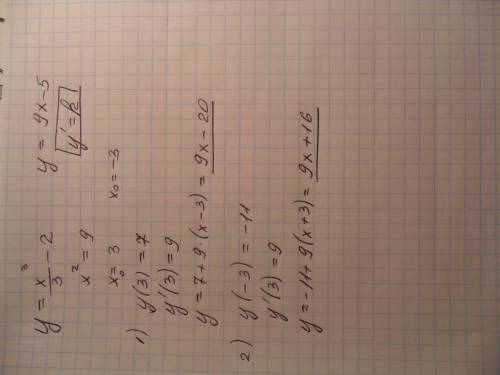 y = x³/3 − 2    y = 9x − 5
x² = 9    y' = k
x₀ = 3    x₀ = −3
1) y(3) = 7
y'(3) = 9
y = 7 + 9·(x − 3) = 9x − 20
2) y(−3) = −11
y'(3) = 9
y = −11 + 9(x + 3) = 9x + 16